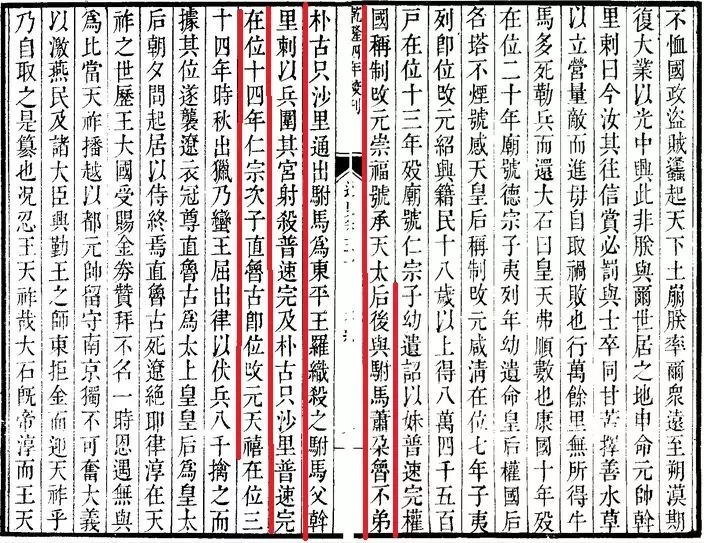 不恤國政盜賊蠭起天下土崩朕率爾衆遠至朔漠期
復大業以光中興此非朕與爾世居之地申命元帥斡
里剌曰今汝其往信賞必罰與士卒同甘苦擇善水草
以立營量敵而進毋自取禍敗也行萬餘里無所得牛
馬多死勒兵而還大石曰皇天弗順數也康國十年歿
在位二十年廟號德宗子夷列年幼遺命皇后權國后
名塔不煙號感天皇后稱制改元咸清在位七年子夷
列卽位改元紹興籍民十八歲以上得八萬四千五百
戸在位十三年歿廟號仁宗子幼遺詔以妹普速完權
國稱制改元崇福號承天太后後與駙馬蕭朶魯不弟
乾隆四年校刊
朴古只沙里通出駙馬爲東平王羅織殺之駙馬父斡
里剌以兵圍其宮射殺普速完及朴古只沙里普速完
在位十四年仁宗次子直魯古卽位改元天禧在位三
十四年時秋出獵乃蠻王屈出律以伏兵八千擒之而
據其位遂襲遼衣冠尊直魯古爲太上皇皇后爲皇太
后朝夕問起居以侍終焉直魯古死遼絶耶律淳在天
祚之世歷王大國受賜金券贊拜不名一時恩遇無與
爲比當天祚播越以都元帥留守南京獨不可奮大義
以激燕民及諸大臣興勤王之師東拒金而迎天祚乎
乃自取之是簒也况忍王天祚哉大石旣帝淳而王天